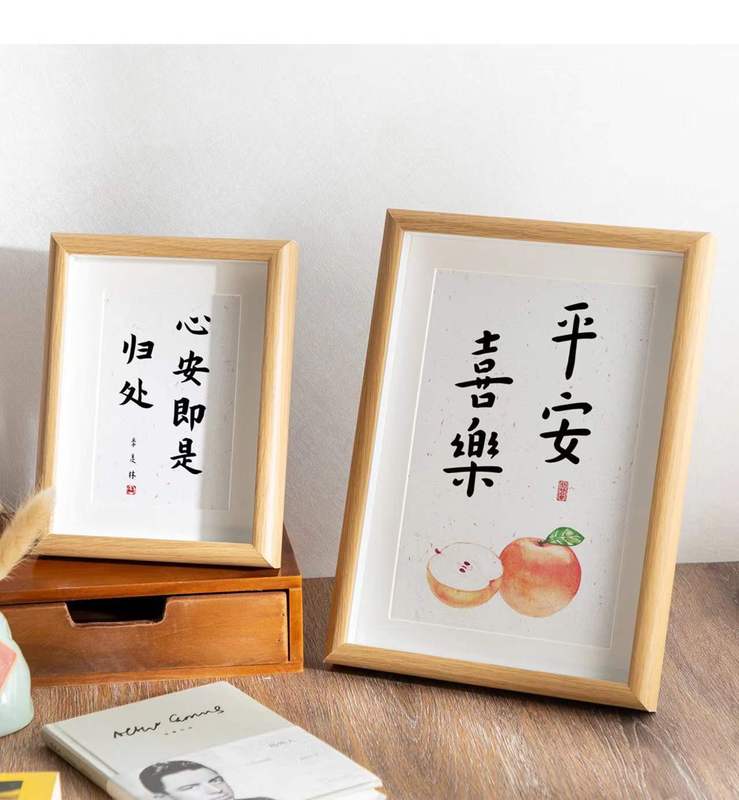 心安即是
归处
平安
喜樂
Albert Camus